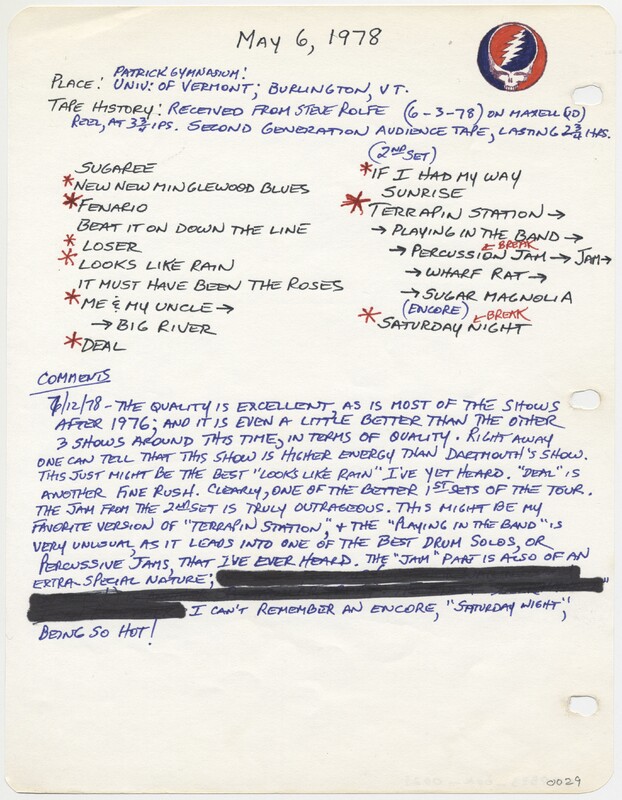 MAY 6, 1978
PATRICK GYMNASIUM:
PLACE: UNIV: OF VERMONT; BURLINGTON, VT.
TAPE HISTORY: RECEIVED FROM STEVE ROLFE (6-3-78) ON MAXELL (UD)
REEL, AT 3 3/4 IPS. SECOND GENERATION AUDIENCE TAPE, LASTING 2 3/4 HRS.
SUGAREE
*NEW NEW MINGLEWOOD BLUES
*FENARIO
BEAT IT ON DOWN THE LINE
*LOSER
*LOOKS LIKE RAIN
IT MUST HAVE BEEN THE ROSES
*ME & MY UNCLE →
→ BIG RIVER
*DEAL
(2ND SET)
*IF I HAD MY WAY
SUNRISE
*TERRAPIN STATION →
→ PLAYING IN THE BAND →
← BREAK
→ PERCUSSION JAM → JAM →
→ WHARF RAT →
→ SUGAR MAGNOLIA
(ENCORE) ← BREAK
*SATURDAY NIGHT
COMMENTS
6/12/78 - THE QUALITY IS EXCELLENT, AS IS MOST OF THE SHOWS
AFTER 1976; AND IT IS EVEN A LITTLE BETTER THAN THE OTHER
3 SHOWS AROUND THIS TIME, IN TERMS OF QUALITY. RIGHT AWAY
ONE CAN TELL THAT THIS SHOW IS HIGHER ENERGY THAN DARTMOUTH'S SHOW.
THIS JUST MIGHT BE THE BEST "LOOKS LIKE RAIN" I'VE YET HEARD. "DEAL" IS
ANOTHER FINE RUSH. CLEARLY, ONE OF THE BETTER 1ST SETS OF THE TOUR.
THE JAM FROM THE 2ND SET IS TRULY OUTRAGEOUS. THIS MIGHT BE MY
FAVORITE VERSION OF "TERRAPIN STATION", & THE "PLAYING IN THE BAND" IS
VERY UNUSUAL, AS IT LEADS INTO ONE OF THE BEST DRUM SOLOS, OR
PERCUSSIVE JAMS, THAT I'VE EVER HEARD. THE "JAM" PART IS ALSO OF AN
EXTRA-SPECIAL NATURE;
I CAN'T REMEMBER AN ENCORE, "SATURDAY NIGHT",
BEING SO HOT!
0029